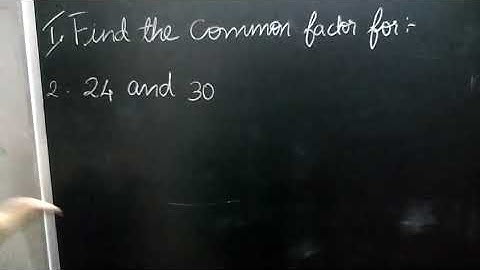 I. Find the common factor for:-
2. 24 and 30